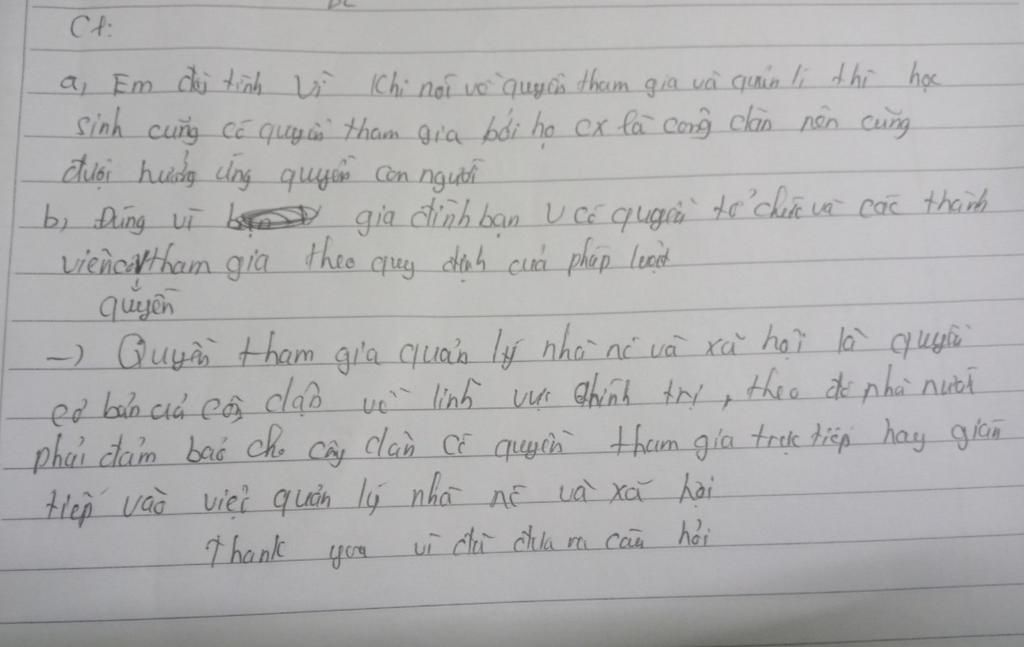 Ct:
a, Em đại tình Vì Khi nói về quyền tham gia và quản lí thì học
sinh cũng có quyền tham gia bởi họ cx là công dân nên cũng
được hưởng ứng quyền con người
b, Đúng vì gia đình bạn V có quyền tổ chức và các thành
viên có tham gia theo quy định của pháp luật
quyền
-) Quyền tham gia quản lý nhà nc và xã hội là quyền
cơ bản của công dân về lĩnh vực chính trị, theo đó nhà nước
phải đảm bảo cho công dân có quyền tham gia trực tiếp hay gián
tiếp vào việc quản lý nhà nc và xã hội
Thank you vì đã đưa ra câu hỏi